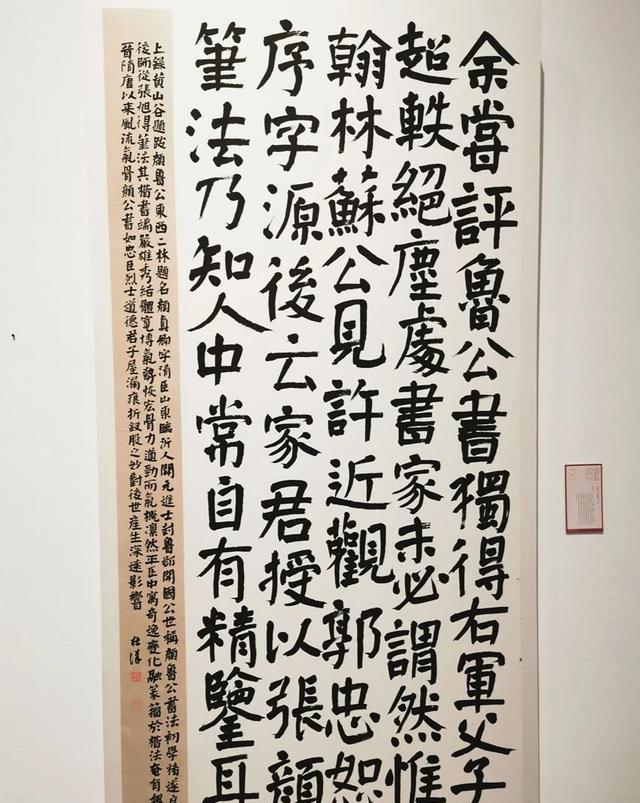 余嘗評魯公書獨得右軍父子
超軼絕塵處書家未必謂然惟
翰林蘇公見許近觀郭忠恕
序字源後云家君授以張顏
筆法乃知人中常自有精鑒耳
上錄黃山谷題跋顏魯公東西二林題名顏真卿字清臣山東臨沂人開元進士封魯郡開國公世稱顏魯公書法初學褚遂良
後師從張旭得筆法其楷書端嚴雄秀結體寬博氣勢恢宏骨力遒勁而氣概凜然平正中寓奇逸變化融篆籀於楷法奄有魏
晉隋唐以來風流氣骨顏公書如忠臣烈士道德君子屋漏痕折釵股之妙對後世產生深遠影響